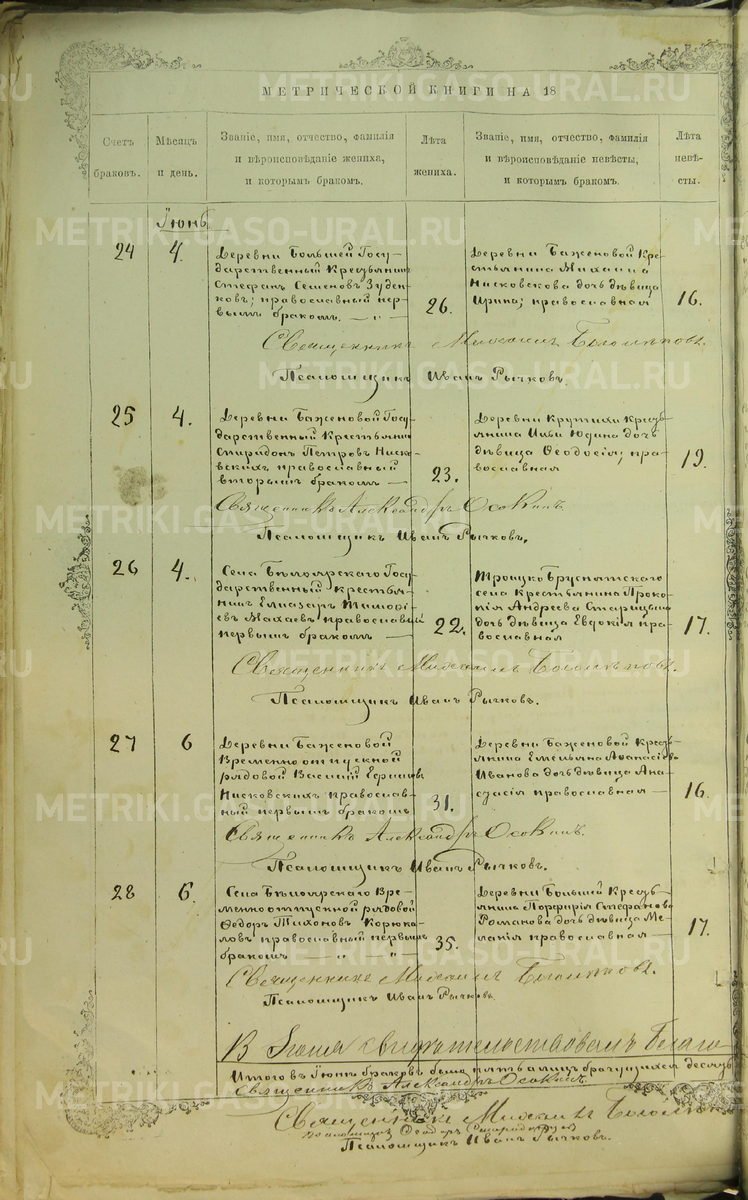 МЕТРИЧЕСКОЙ КНИГИ НА 18
Счетъ браковъ.
Мѣсяцъ и день.
Званіе, имя, отчество, фамилія и вѣроисповѣданіе жениха, и которымъ бракомъ.
Лѣта жениха.
Званіе, имя, отчество, фамилія и вѣроисповѣданіе невѣсты, и которымъ бракомъ.
Лѣта невѣсты.
Іюнь
24 4.
Деревни Большей Госу-
дарственный Крестьянинъ
Стефанъ Семеновъ Зуден-
ковъ; православный пер-
вымъ бракомъ. — „ —
26.
Деревни Баженовой Кре-
стьянина Михаила
Нисковскова дочь дѣвица
Ирина; православная
16.
Священникъ Михаилъ
Псаломщикъ Иванъ Рычковъ.
25 4.
Деревни Баженовой Госу-
дарственный Крестьянинъ
Спиридонъ Петровъ Ниско-
вскихъ православный
вторымъ бракомъ —
23.
Деревни Крутихи Кресть-
янина Ильи Юдина дочь
дѣвица Ѳеодосія; пра-
вославная
19.
Священникъ Александръ Осокинъ.
Псаломщикъ Иванъ Рычковъ.
26 4.
Села Бѣлоярскаго Госу-
дарственный крестья-
нинъ Елиазаръ Тимофі-
евъ Махаевъ православный
первымъ бракомъ —
22.
Троицко Бруснятскаго
села Крестьянина Проко-
пія Андреева Старицына
дочь дѣвица Евдокія пра-
вославная
17.
Священникъ Михаилъ
Псаломщикъ Иванъ Рычковъ.
27 6
Деревни Баженовой
Временноотпускной
рядовой Василій
Нисковскихъ православ-
ный первымъ бракомъ
31.
Деревни Баженовой Кресть-
янина Емельяна Аѳанасіева
Иванова дочь дѣвица Ана-
стасія православная —
16.
Священникъ Александръ Осокинъ.
Псаломщикъ Иванъ Рычковъ.
28 6.
Села Бѣлоярскаго Вре-
менноотпускной рядовой
Ѳедоръ Тихоновъ Корюка-
ловъ православный первымъ
бракомъ — „ — „ —
35.
Деревни Большей Кресть-
янина Порфирія Стефанова
Романова дочь дѣвица Ме-
ланія православная —
17.
Священникъ Михаилъ
Псаломщикъ Иванъ Рычковъ
Итого въ Іюнѣ браковъ было пять а лицъ брачущихся десять
Священникъ Александръ Осокинъ.
Священникъ Михаилъ
Псаломщикъ Иванъ Рычковъ.
METRIKI.GASO-URAL.RU